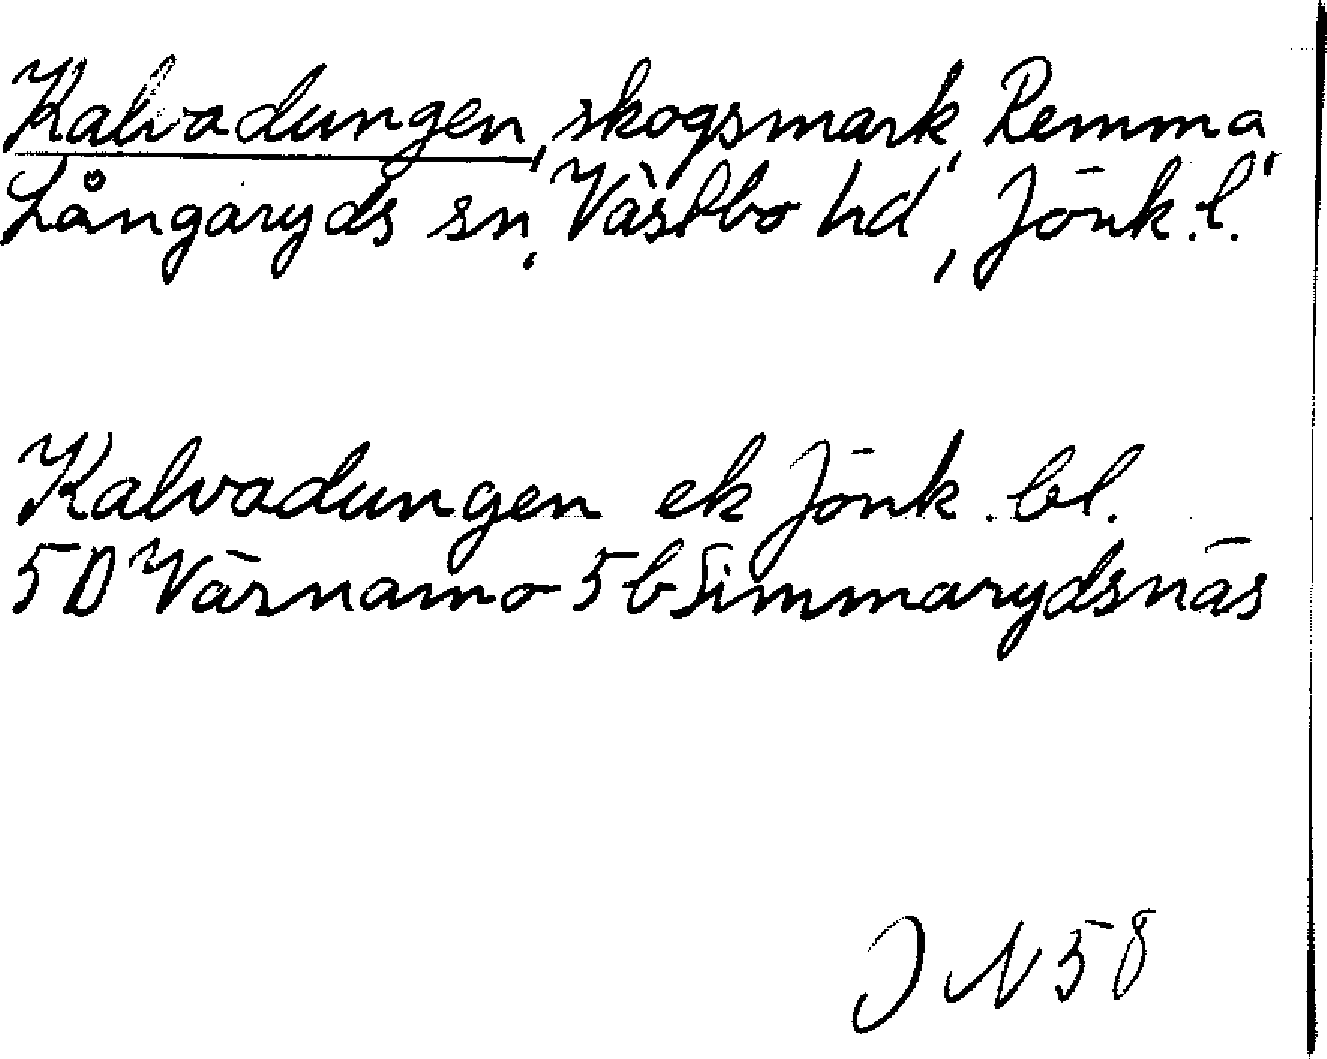 Kalvadungen, skogsmark, Remma,
Långaryds sn, Västbo hd, Jönk.l.
Kalvadungen ek Jönk. bl.
5D Värnamo 5b Simmarydsnäs
J N 58